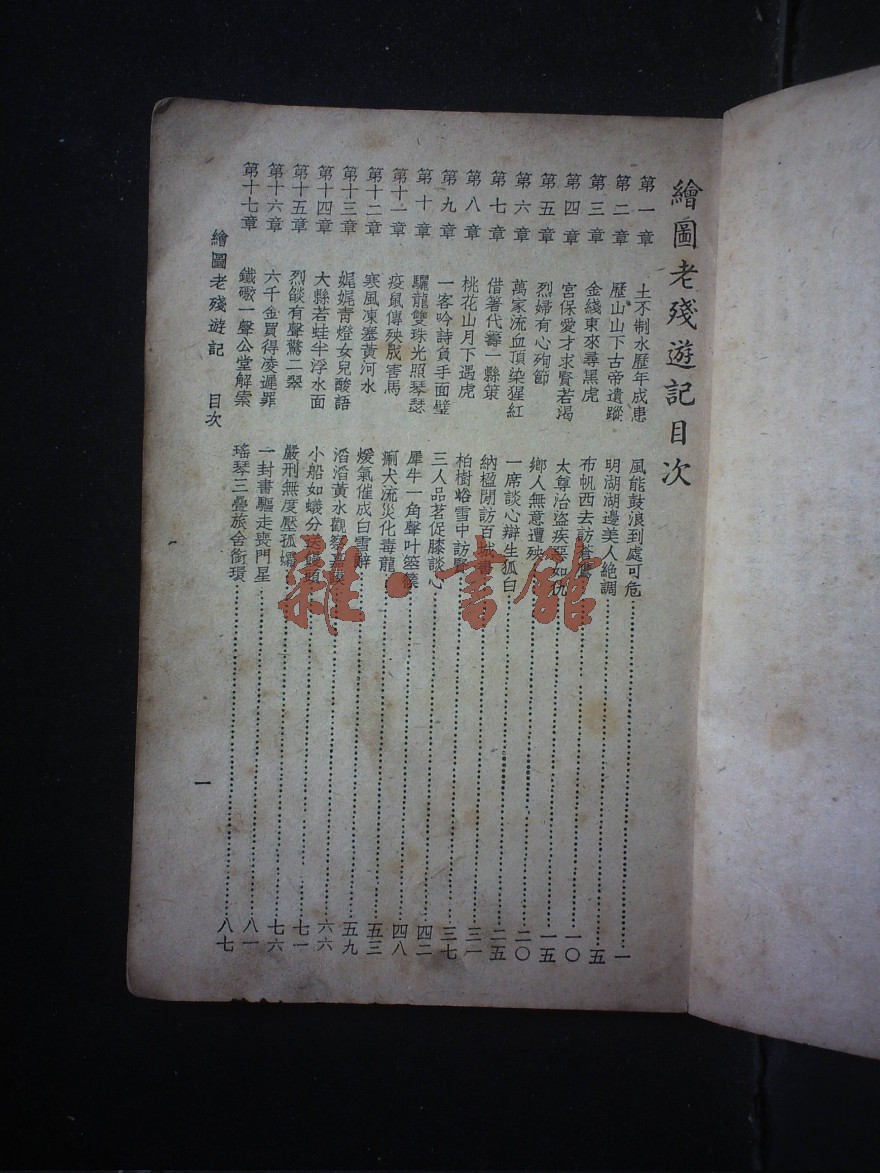 繪圖老殘遊記目次
第一章 土不制水歷年成患 風能鼓浪到處可危 一
第二章 歷山山下古帝遺蹤 明湖湖邊美人絕調 五
第三章 金綫東來尋黑虎 布帆西去訪蒼鷹 一〇
第四章 宮保愛才求賢若渴 太尊治盜疾惡如仇 一五
第五章 烈婦有心殉節 鄉人無意遭殃 二〇
第六章 萬家流血頂染猩紅 一席談心辯生狐白 二五
第七章 借箸代籌一縣策 納楹閉訪百城書 三一
第八章 桃花山月下遇虎 柏樹峪雪中訪賢 三七
第九章 一客吟詩負手面壁 三人品茗促膝談心 四二
第十章 驪龍雙珠光照琴瑟 犀牛一角聲叶箜篌 四八
第十一章 疫鼠傳殃成害馬 瘈犬流災化毒龍 五三
第十二章 寒風凍塞黃河水 煖氣催成白雪辭 五九
第十三章 娓娓青燈女兒酸語 滔滔黃水觀察嘉謨 六六
第十四章 大縣若蛙半浮水面 小船如蟻分送饅頭 七一
第十五章 烈燄有聲驚二翠 嚴刑無度壓孤孀 七六
第十六章 六千金買得凌遲罪 一封書驅走喪門星 八一
第十七章 鐵礮一聲公堂解索 瑤琴三疊旅舍銜環 八七
繪圖老殘遊記 目次 一
雜·書館